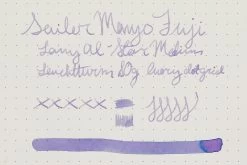 Sailor Manyo Fuji
Lamy Al-Star Medium
Leuchtturm 80g Ivory dot grid